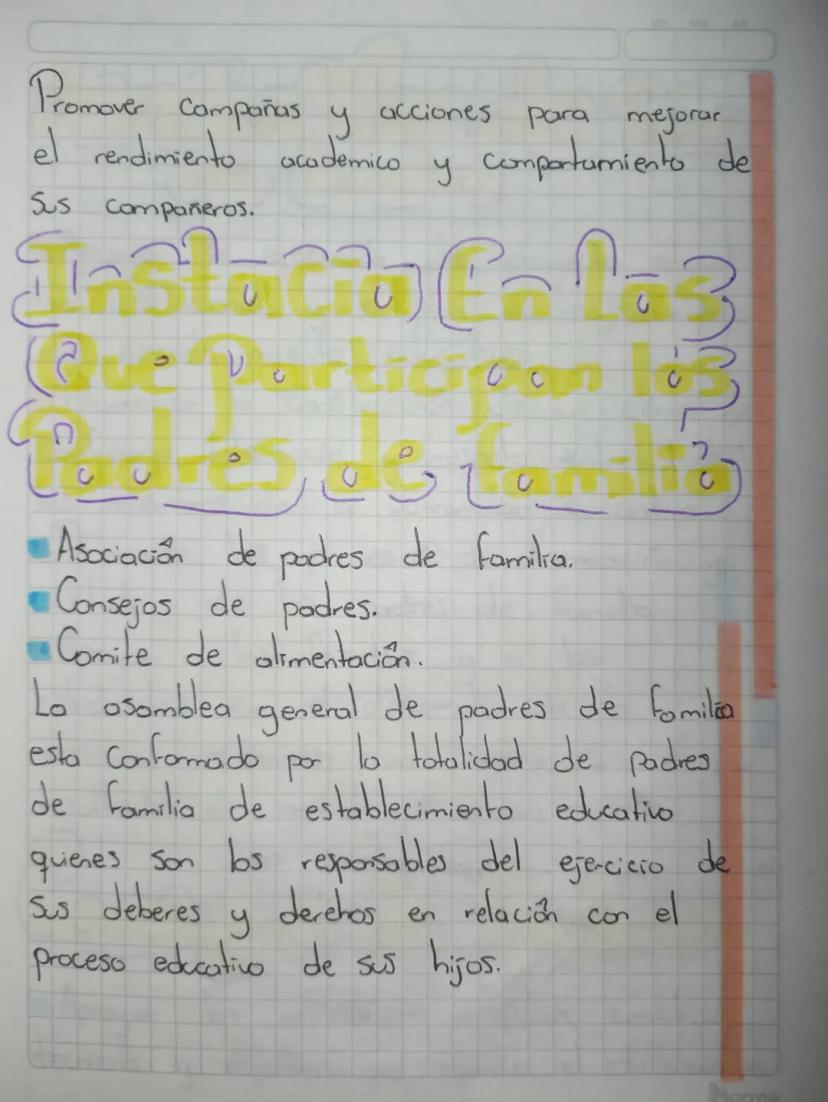 Promover campañas y acciones para mejorar
el rendimiento academico y comportamiento de
sus compañeros.
Instacia En las
Que Participan los
Padres de familia
Asociación de padres de familia.
Consejos de padres.
Comite de alimentación.
La asamblea general de padres de familia
esta conformado por la totalidad de padres
de familia de establecimiento educativo
quienes son los responsables del ejercicio de
sus deberes y derehos en relación con el
proceso educativo de sus hijos.
Norma